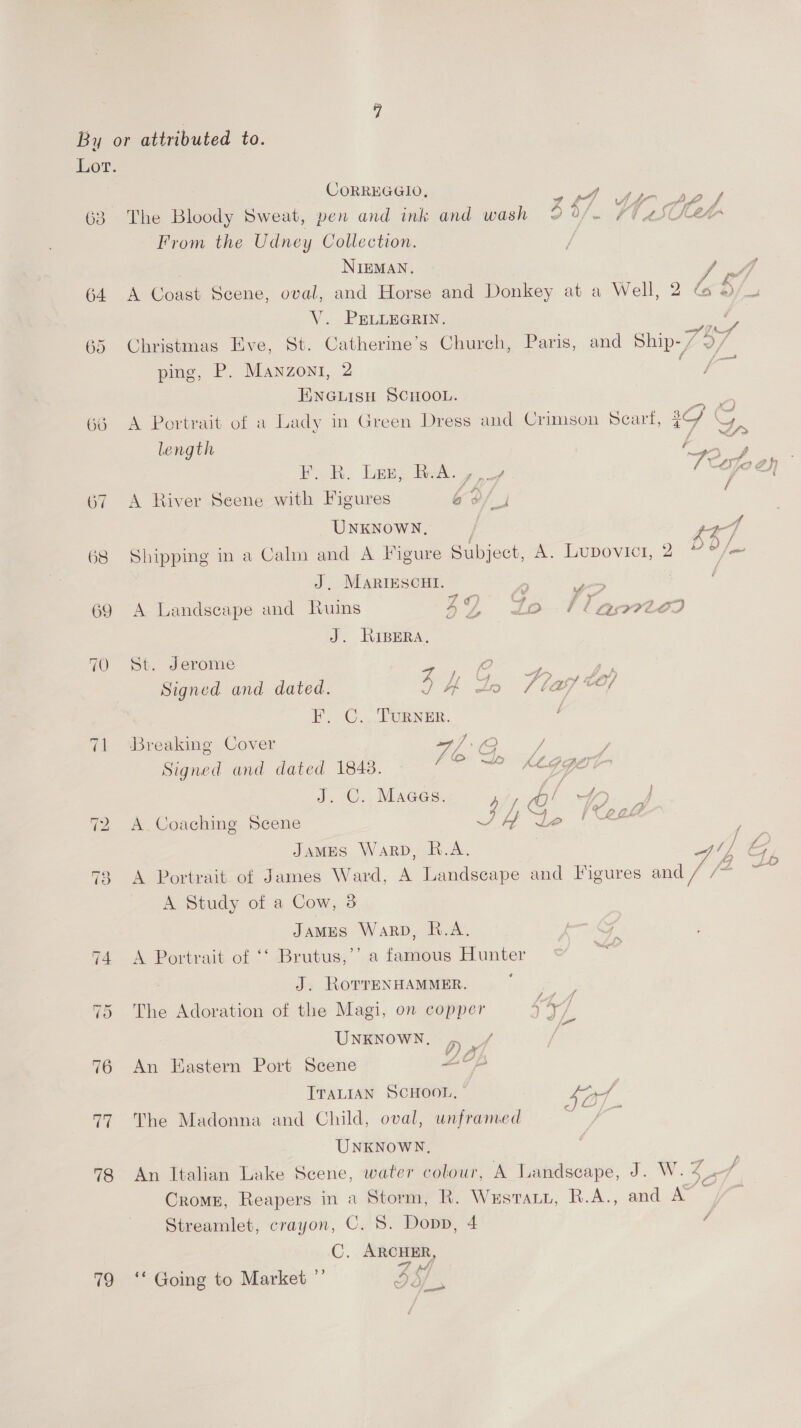 7
By or attributed to.
Lot.
CORREGGIO.
63 The Bloody Sweat, pen and ink and wash
From the Udney Collection.
NIEMAN.
64 A Coast Scene, oval, and Horse and Donkey at a Well, 2
V. PELLEGRIN.
65 Christmas Eve, St. Catherine's Church, Paris, and Ship-
ping, P. MANZONI, 2
ENGLISH SCHOOL.
66 A Portrait of a Lady in Green Dress and Crimson Scarf, ¾
length
F. R. LEE, R.A.
67 A River Scene with Figures
UNKNOWN.
68 Shipping in a Calm and A Figure Subject, A. LUDOVICI, 2
J. MARIESCHI.
69 A Landscape and Ruins
J. RIBERA.
70 St. Jerome
Signed and dated.
F. C. TURNER.
71 Breaking Cover
Signed and dated 1843.
J. C. MAGGS.
72 A Coaching Scene
JAMES WARD, R.A.
73 A Portrait of James Ward, A Landscape and Figures and
A Study of a Cow, 3
JAMES WARD, R.A.
74 A Portrait of “ Brutus,” a famous Hunter
J. ROTTENHAMMER.
75 The Adoration of the Magi, on copper
UNKNOWN.
76 An Eastern Port Scene
ITALIAN SCHOOL.
77 The Madonna and Child, oval, unframed
UNKNOWN.
78 An Italian Lake Scene, water colour, A Landscape, J. W.
CROME, Reapers in a Storm, R. WESTALL, R.A., and A
Streamlet, crayon, C. S. DODD, 4
C. ARCHER,
79 “ Going to Market ”